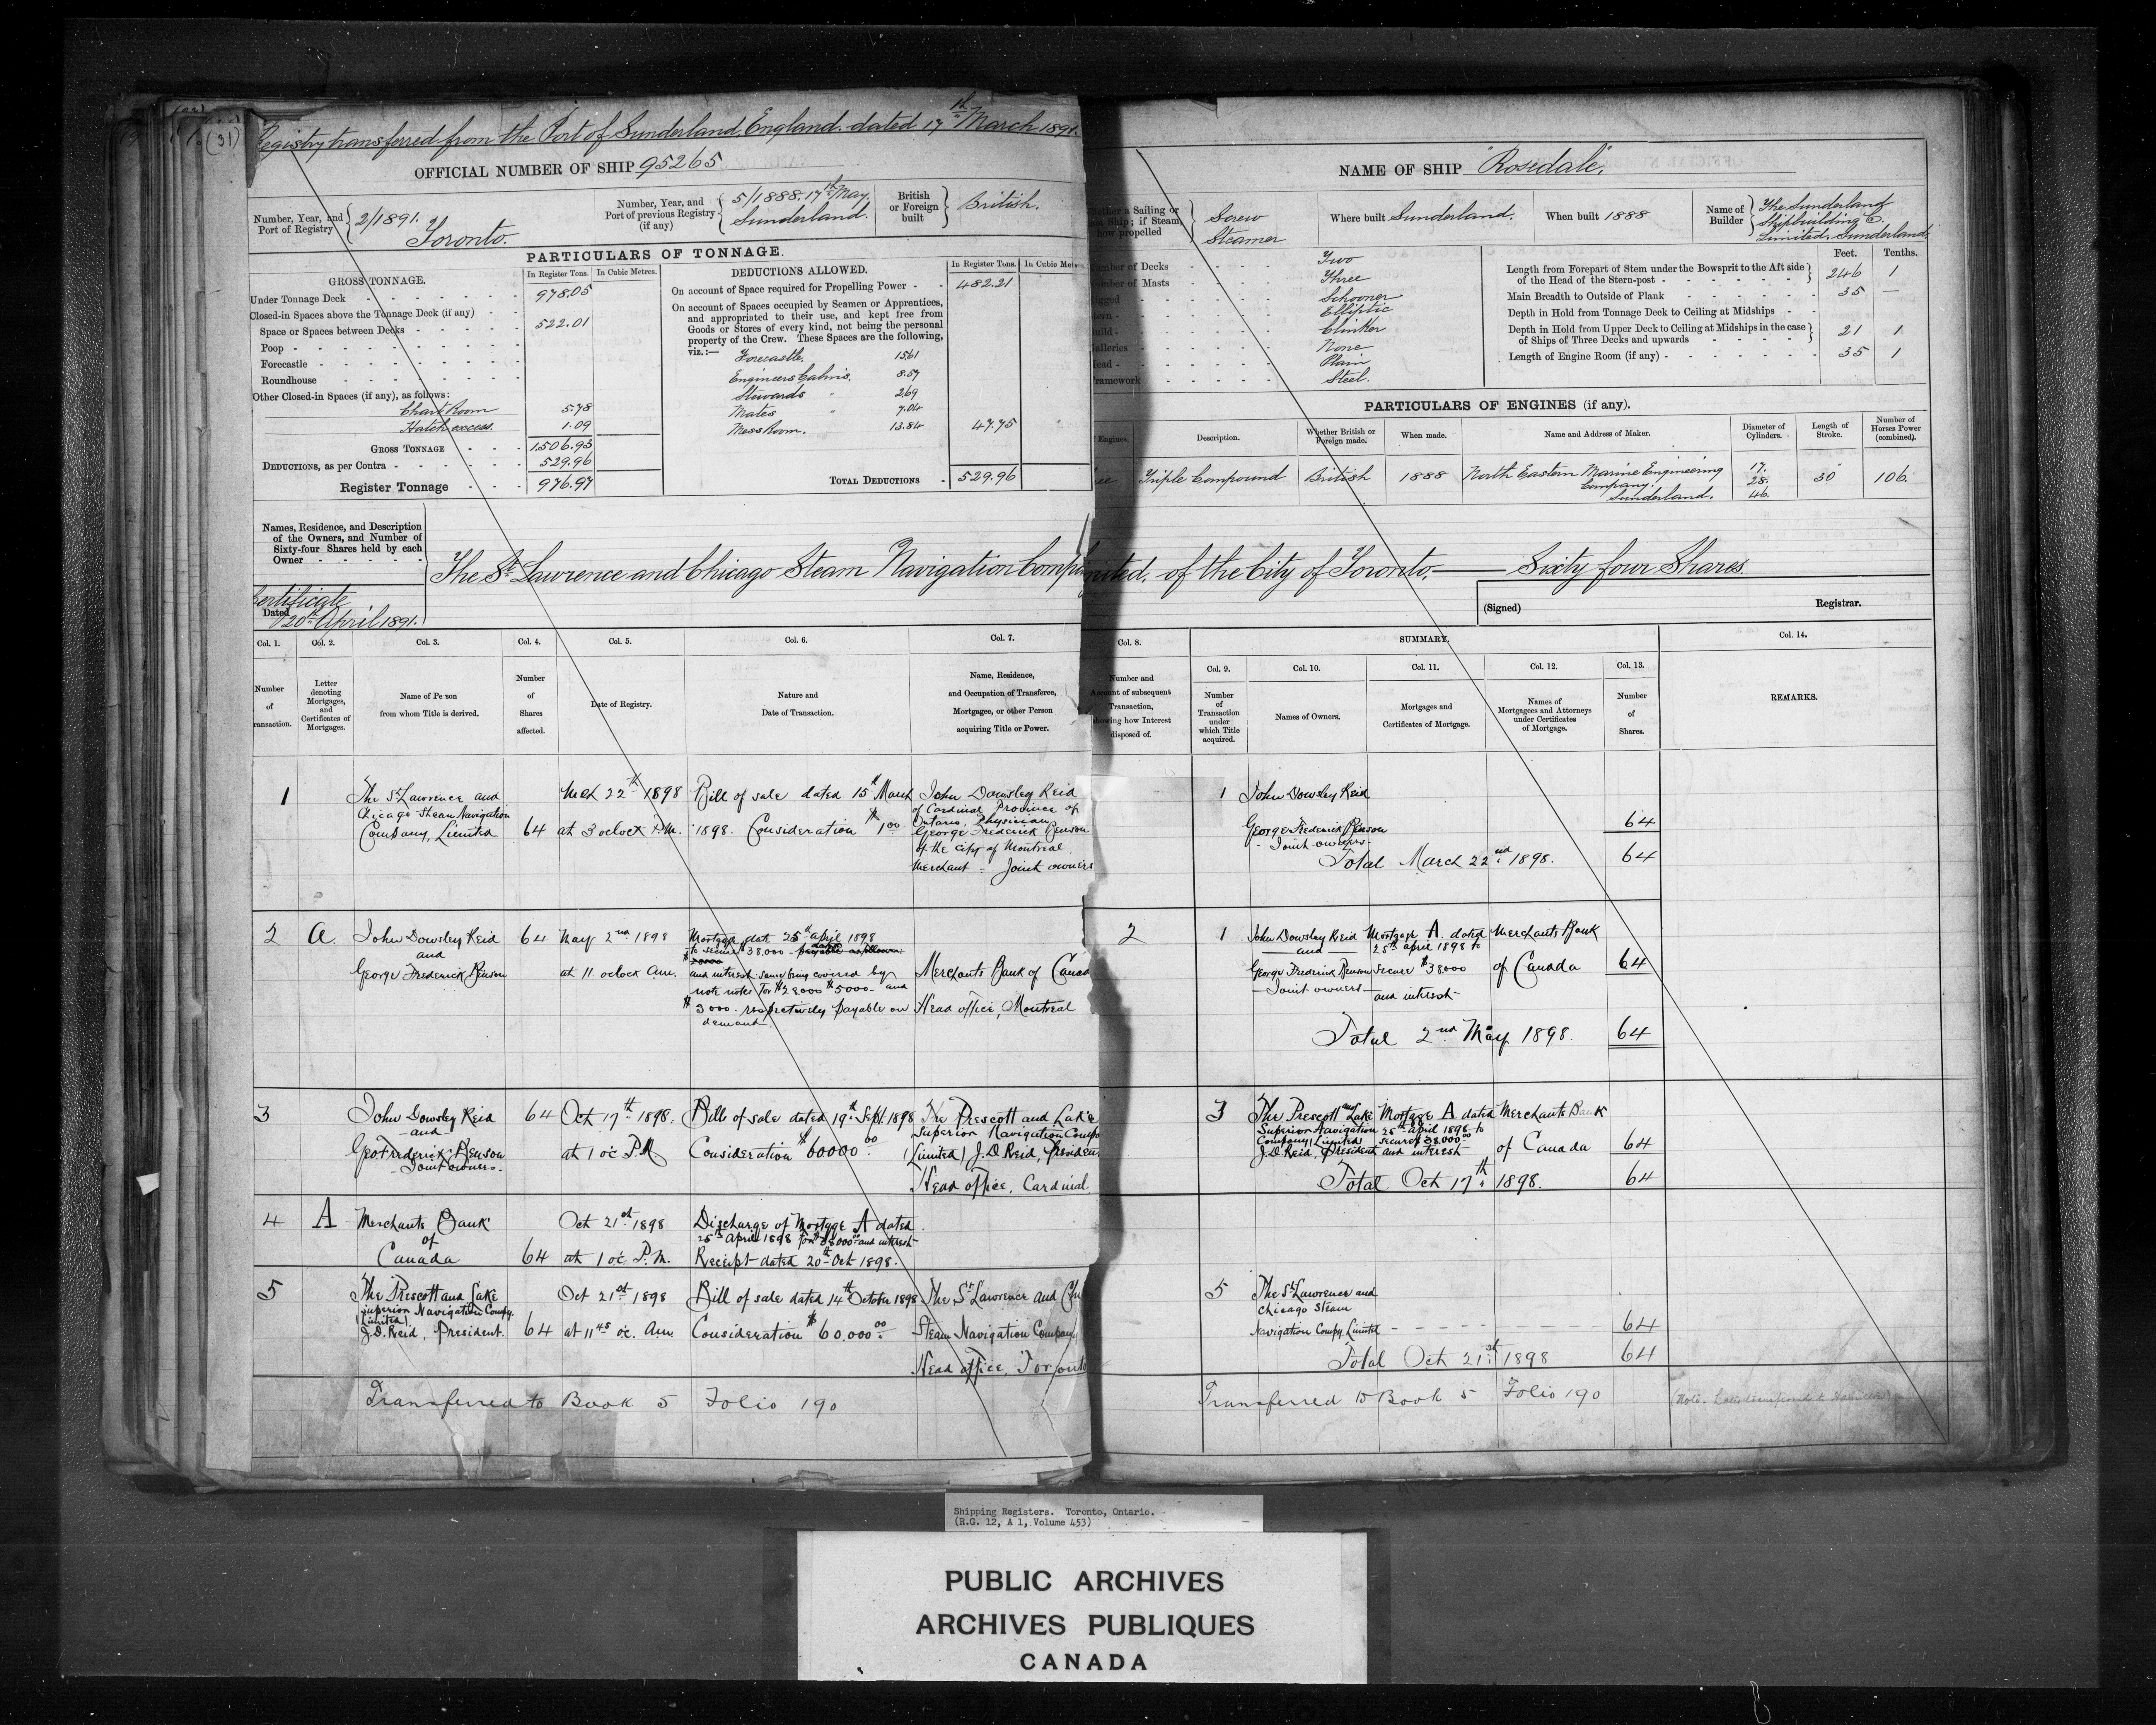 (31)
Registry transferred from the Port of Sunderland, England. dated 17th March 1891.
OFFICIAL NUMBER OF SHIP 95265
Number, Year, and Port of Registry 2/1891. Toronto.
Number, Year, and Port of previous Registry (if any) 5/1888. 17th May. Sunderland.
British or Foreign built British.
PARTICULARS OF TONNAGE.
GROSS TONNAGE. In Register Tons. In Cubic Metres.
Under Tonnage Deck 978.05
Closed-in Spaces above the Tonnage Deck (if any)
Space or Spaces between Decks 522.01
Poop
Forecastle
Roundhouse
Other Closed-in Spaces (if any), as follows:
Chart Room 5.78
Hatch excess. 1.09
GROSS TONNAGE 1506.93
DEDUCTIONS, as per Contra 529.96
Register Tonnage 976.97
DEDUCTIONS ALLOWED. In Register Tons. In Cubic Metres
On account of Space required for Propelling Power 482.21
On account of Spaces occupied by Seamen or Apprentices,
and appropriated to their use, and kept free from
Goods or Stores of every kind, not being the personal
property of the Crew. These Spaces are the following,
viz.:— Forecastle. 15.61
Engineers Cabins. 8.57
Stewards " 2.69
Mates " 7.04
Mess Room. 13.84 47.75
TOTAL DEDUCTIONS 529.96
Names, Residence, and Description
of the Owners, and Number of
Sixty-four Shares held by each
Owner
The St. Lawrence and Chicago Steam Navigation Comp
Certificate
Dated 20th April 1891.
Col. 1. Col. 2. Col. 3. Col. 4. Col. 5. Col. 6. Col. 7.
Number of ransaction.
Letter denoting Mortgages, and Certificates of Mortgages.
Name of Person from whom Title is derived.
Number of Shares affected.
Date of Registry.
Nature and Date of Transaction.
Name, Residence, and Occupation of Transferee, Mortgagee, or other Person acquiring Title or Power.
1 The St Lawrence and Chicago Steam Navigation Company, Limited 64
Mch 22nd 1898 at 3 oclock P.M.
Bill of sale dated 15th March 1898. Consideration $1.00
John Dowsley Reid
of Cardinal Province of
Ontario, Physician
George Frederick Benson
of the city of Montreal
Merchant - Joint owners
2 A. John Dowsley Reid and George Frederick Benson 64
May 2nd 1898 at 11 oclock Am.
Mortgage date 25th April 1898
to secure $38.000
and interest same being covered by
note notes for $28000 $5000 - and
$3000 - respectively payable on
demand.
Merchants Bank of Canad
Head office, Montreal
3 John Dowsley Reid and Geo Frederick Benson - Joint owners - 64
Oct 17th 1898. at 1 oc P.M
Bill of sale dated 19th Sept. 1898
Consideration $60000.00
The Prescott and Lake
Superior Navigation Comp
(Limited) J.D Reid, Presiden
Head office, Cardinal
4 A Merchants Bank of Canada 64
Oct 21st 1898 at 1 oc P.M.
Discharge of Mortgage A dated
25th April 1898 for $38000.00 and interest
Receipt dated 20th Oct 1898.
5 The Prescott and Lake
Superior Navigation Compy.
(Limited)
J.D. Reid, President. 64
Oct 21st 1898 at 11 45 oc. Am.
Bill of sale dated 14th October 1898
Consideration $60.000.00
The St Lawrence and Ch
Steam Navigation Company
Head office, Toronto
Transferred to Book 5 Folio 190
NAME OF SHIP "Rosedale".
hether a Sailing or
m Ship; if Steam,
how propelled Screw Steamer
Where built Sunderland.
When built 1888
Name of Builder The Sunderland Shipbuilding Co. Limited. Sunderland.
umber of Decks Two
umber of Masts Three
igged Schooner
tern Elliptic
uild Clinker
alleries None
ead Plain
ramework Steel.
Feet. Tenths.
Length from Forepart of Stem under the Bowsprit to the Aft side
of the Head of the Stern-post 246 1
Main Breadth to Outside of Plank 35 —
Depth in Hold from Tonnage Deck to Ceiling at Midships
Depth in Hold from Upper Deck to Ceiling at Midships in the case
of Ships of Three Decks and upwards 21 1
Length of Engine Room (if any) 35 1
PARTICULARS OF ENGINES (if any).
Engines. Description. Whether British or Foreign made. When made. Name and Address of Maker. Diameter of Cylinders. Length of Stroke. Number of Horses Power (combined).
ee Triple Compound British 1888 North Eastern Marine Engineering Company. Sunderland. 17. 28. 46. 30" 106.
mited. of the City of Toronto. — Sixty four Shares.
(Signed) Registrar.
Col. 8. SUMMARY. Col. 14.
Col. 9. Col. 10. Col. 11. Col. 12. Col. 13.
Number and
Account of subsequent
Transaction,
showing how Interest
disposed of.
Number of Transaction under which Title acquired.
Names of Owners.
Mortgages and Certificates of Mortgage.
Names of Mortgagees and Attorneys under Certificates of Mortgage.
Number of Shares.
REMARKS.
1 John Dowsley Reid
George Frederick Benson 64
- Joint owners -
Total March 22nd 1898. 64
2 1 John Dowsley Reid and George Frederick Benson - Joint owners -
Mortgage A. dated 25th April 1898 to secure $38000 and interest
Merchants Bank of Canada 64
Total 2nd May 1898. 64
3 The Prescott and Lake
Superior Navigation
Company, Limited
J.D Reid, President
Mortgage A dated 25th April 1898 to secure $38.000.00 and interest
Merchants Bank of Canada 64
Total Oct 17th 1898. 64
5 The St Lawrence and
Chicago Steam
Navigation Compy. Limited 64
Total Oct 21st 1898 64
Transferred to Book 5 Folio 190
(Note.
Shipping Registers. Toronto, Ontario.
(R.G. 12, A 1, Volume 453)
PUBLIC ARCHIVES
ARCHIVES PUBLIQUES
CANADA